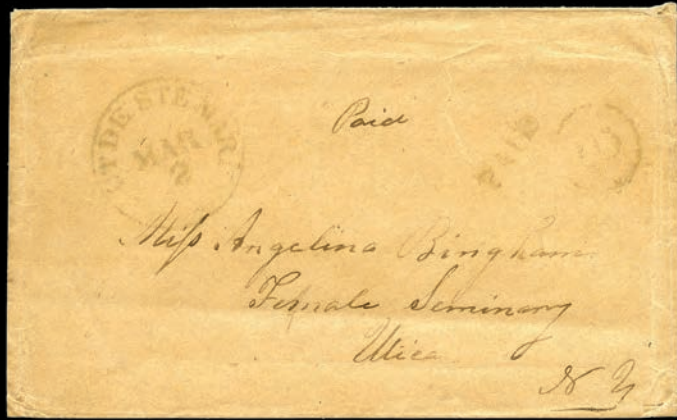 LT DE STE MARI
MAR
2
Paid
PAID
Miss Angelina Bingham
Female Seminary
Utica
N Y